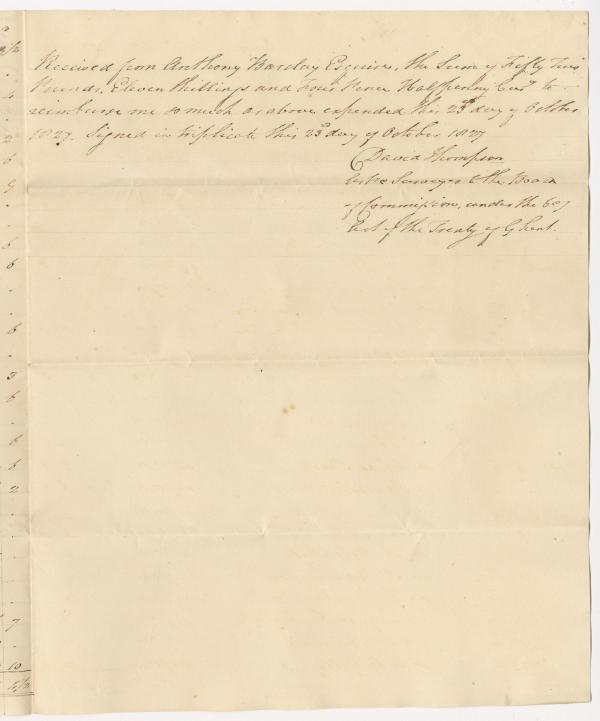 Received from Anthony Barclay Esquire, the Sum of Fifty Two
Pounds, Eleven Shillings and Four Pence Halfpenny Curʸ to
reimburse me so much as above expended this 23ᵈ day of October
1827. Signed in triplicate this 23ᵈ day of October 1827
David Thompson
Astʳ Surveyor to the Board
of Commission, under the 6 & 7
Art of the Treaty of Ghent.
4
2
6
9
6
6
6
3
6
6
6
2
7
10
4½